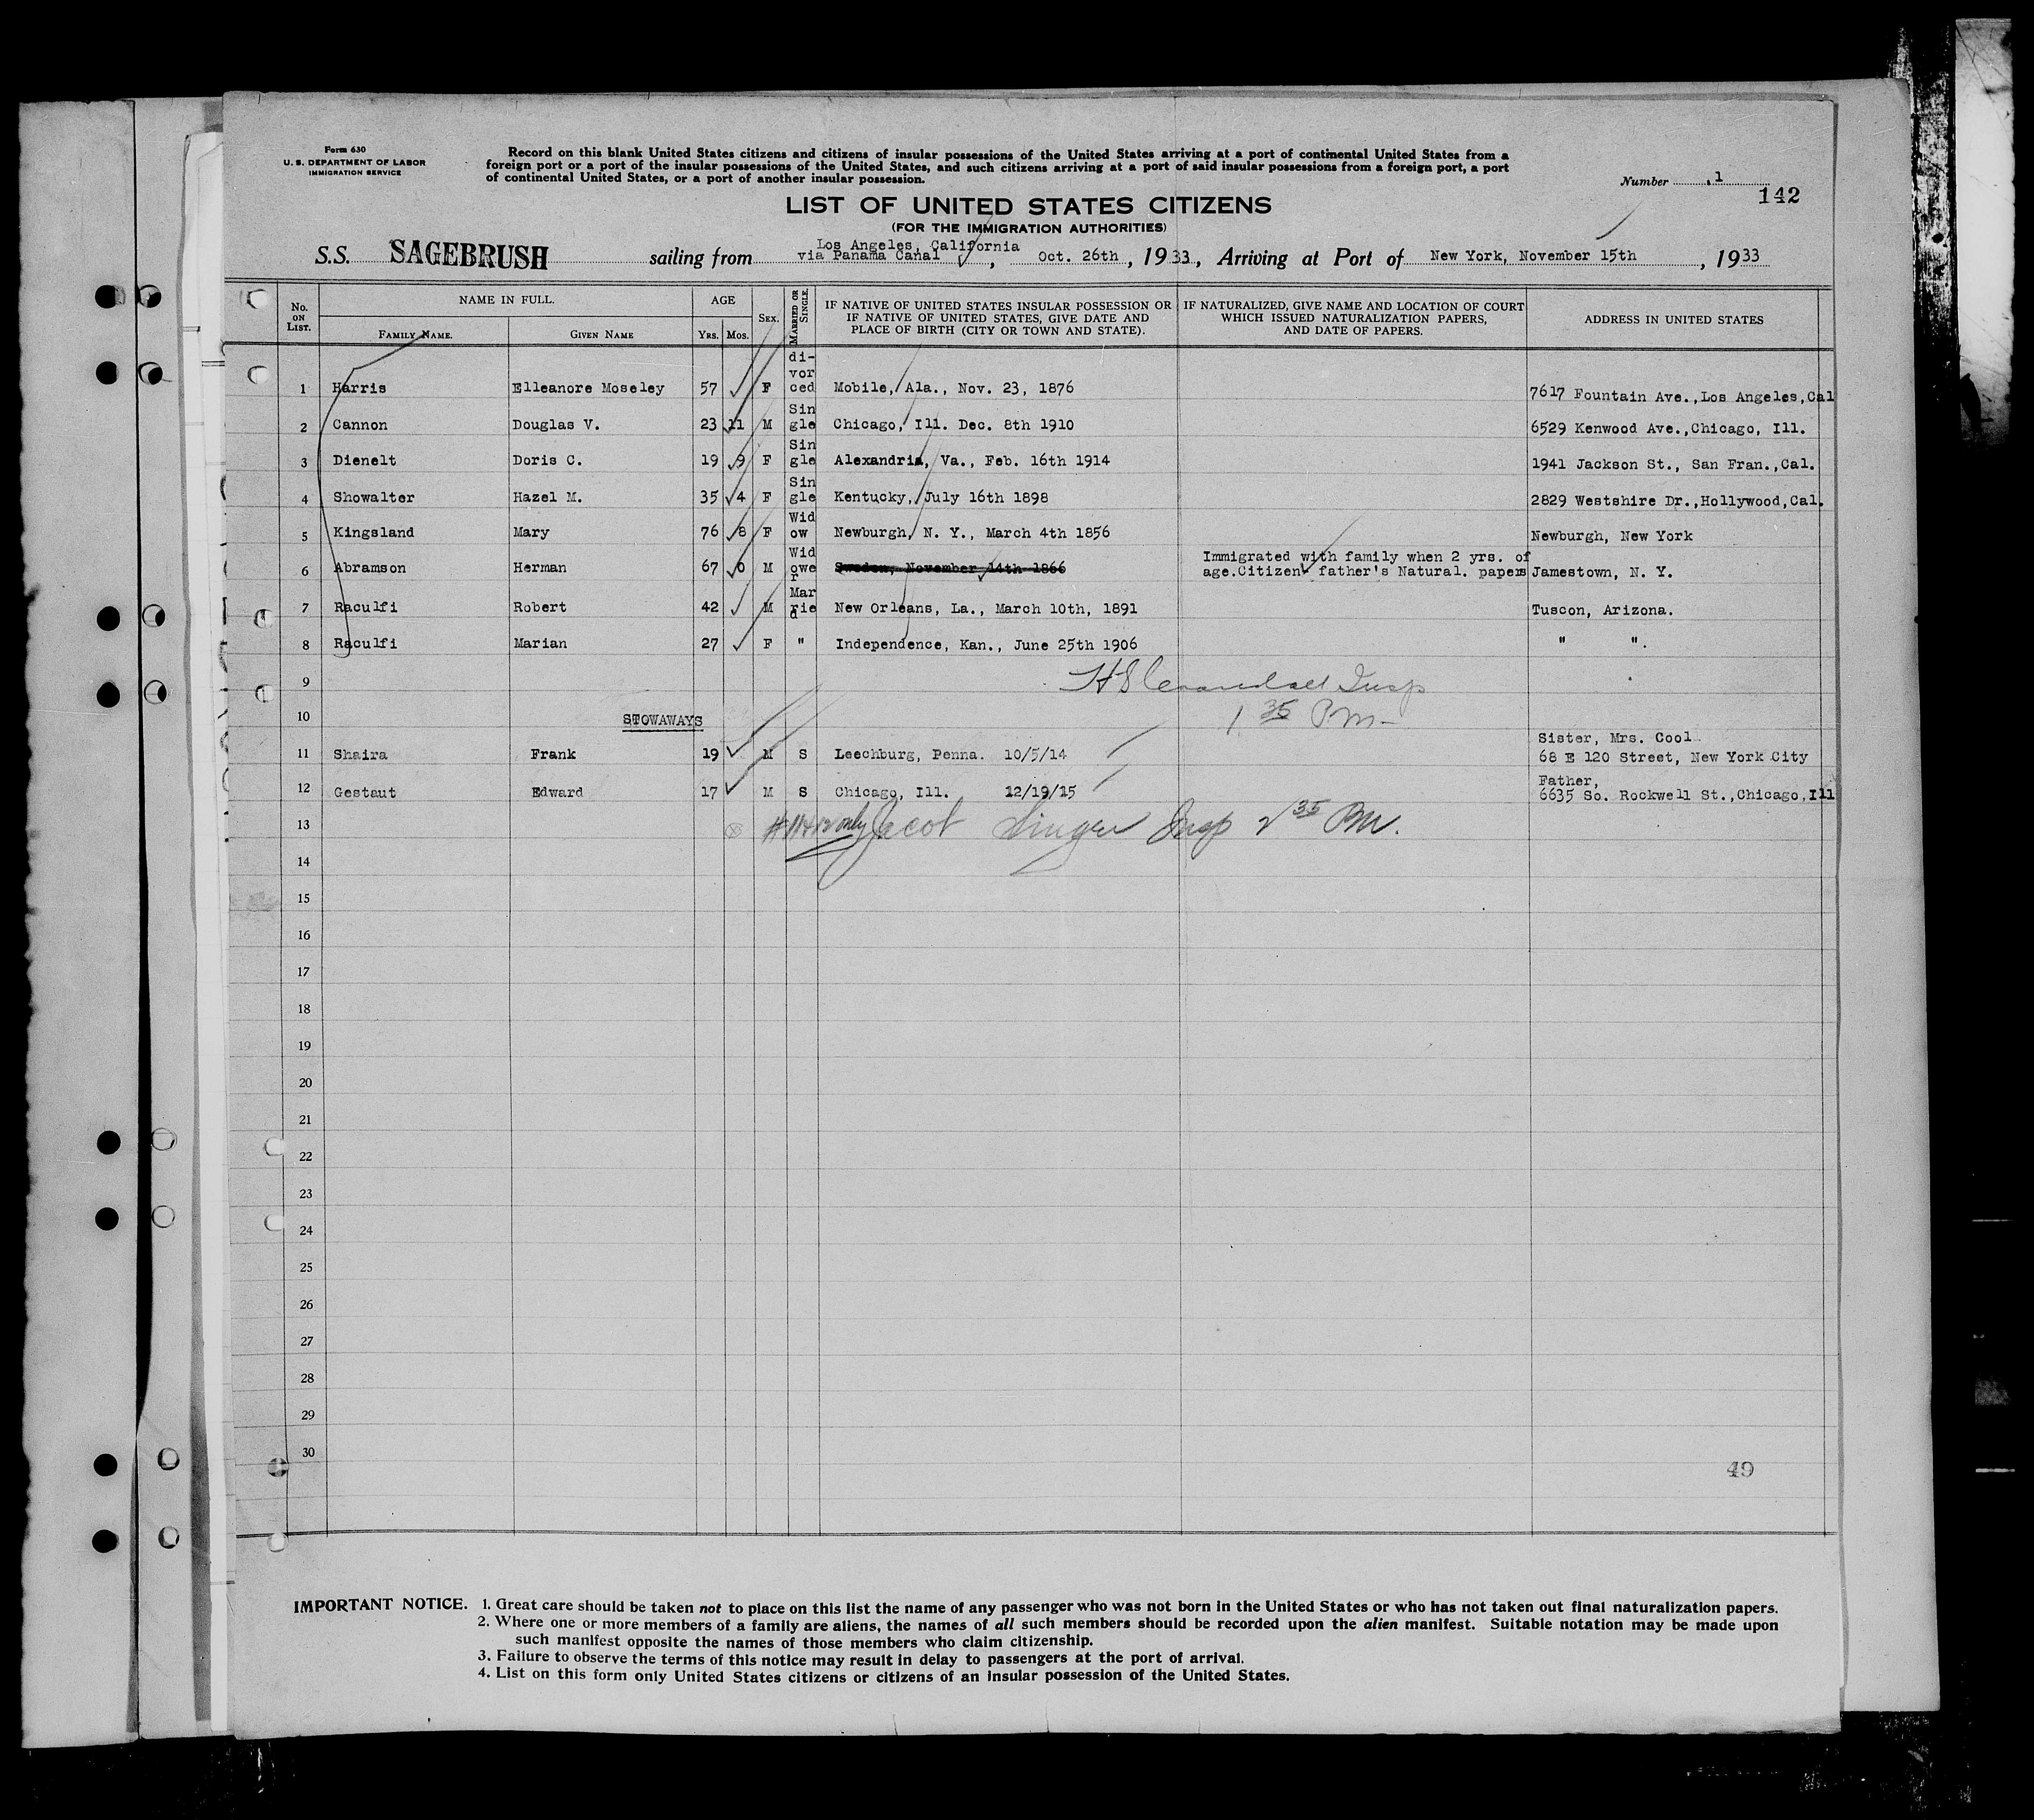 Form 630
U. S. DEPARTMENT OF LABOR
IMMIGRATION SERVICE
Record on this blank United States citizens and citizens of insular possessions of the United States arriving at a port of continental United States from a
foreign port or a port of the insular possessions of the United States, and such citizens arriving at a port of said insular possessions from a foreign port, a port
of continental United States, or a port of another insular possession.
Number 1
142
LIST OF UNITED STATES CITIZENS
(FOR THE IMMIGRATION AUTHORITIES)
Los Angeles, California
S.S. SAGEBRUSH sailing from via Panama Canal, Oct. 26th, 1933, Arriving at Port of New York, November 15th, 1933
No. ON LIST. NAME IN FULL. FAMILY NAME. GIVEN NAME AGE YRS. MOS. SEX. MARRIED OR SINGLE. IF NATIVE OF UNITED STATES INSULAR POSSESSION OR IF NATIVE OF UNITED STATES, GIVE DATE AND PLACE OF BIRTH (CITY OR TOWN AND STATE). IF NATURALIZED, GIVE NAME AND LOCATION OF COURT WHICH ISSUED NATURALIZATION PAPERS, AND DATE OF PAPERS. ADDRESS IN UNITED STATES
1 Harris Elleanore Moseley 57 F di-vorced Mobile, Ala., Nov. 23, 1876 7617 Fountain Ave.,Los Angeles,Cal
2 Cannon Douglas V. 23 11 M Single Chicago, Ill. Dec. 8th 1910 6529 Kenwood Ave.,Chicago, Ill.
3 Dienelt Doris C. 19 9 F Single Alexandria, Va., Feb. 16th 1914 1941 Jackson St., San Fran.,Cal.
4 Showalter Hazel M. 35 4 F Single Kentucky, July 16th 1898 2829 Westshire Dr.,Hollywood,Cal.
5 Kingsland Mary 76 8 F Widow Newburgh, N. Y., March 4th 1856 Newburgh, New York
6 Abramson Herman 67 0 M Widower Sweden, November 14th 1866 Immigrated with family when 2 yrs. of age.Citizen father's Natural. papers Jamestown, N. Y.
7 Raculfi Robert 42 M Married New Orleans, La., March 10th, 1891 Tuscon, Arizona.
8 Raculfi Marian 27 F " Independence, Kan., June 25th 1906 " ".
9 Insp
10 STOWAWAYS 1 35 Pm-
11 Shaira Frank 19 M S Leechburg, Penna. 10/5/14 Sister, Mrs. Cool 68 E 120 Street, New York City
12 Gestaut Edward 17 M S Chicago, Ill. 12/19/15 Father, 6635 So. Rockwell St.,Chicago,Ill
13 #11+12 only Jacob Singer Insp 2 35 PM.
14
15
16
17
18
19
20
21
22
23
24
25
26
27
28
29
30
49
IMPORTANT NOTICE. 1. Great care should be taken not to place on this list the name of any passenger who was not born in the United States or who has not taken out final naturalization papers.
2. Where one or more members of a family are aliens, the names of all such members should be recorded upon the alien manifest. Suitable notation may be made upon
such manifest opposite the names of those members who claim citizenship.
3. Failure to observe the terms of this notice may result in delay to passengers at the port of arrival.
4. List on this form only United States citizens or citizens of an insular possession of the United States.